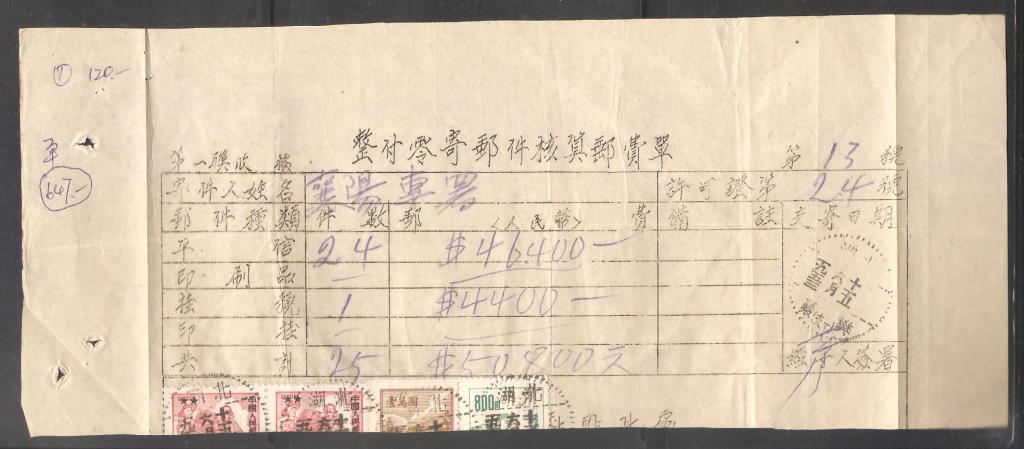 ① 120.-
整付零寄郵件核算郵費單
第一聯收據
第 13 號
647.-
寄件人姓名 襄陽專署 許可證第 24 號
郵件種類 件數 郵 〈人民幣〉 費 備註 交寄日期
平信 24 $46400-
印刷品
掛號 1 $4400-
印掛
共計 25 $50800元
經手人簽署
十五
六月
中國人民
壹萬圓
800
湖北